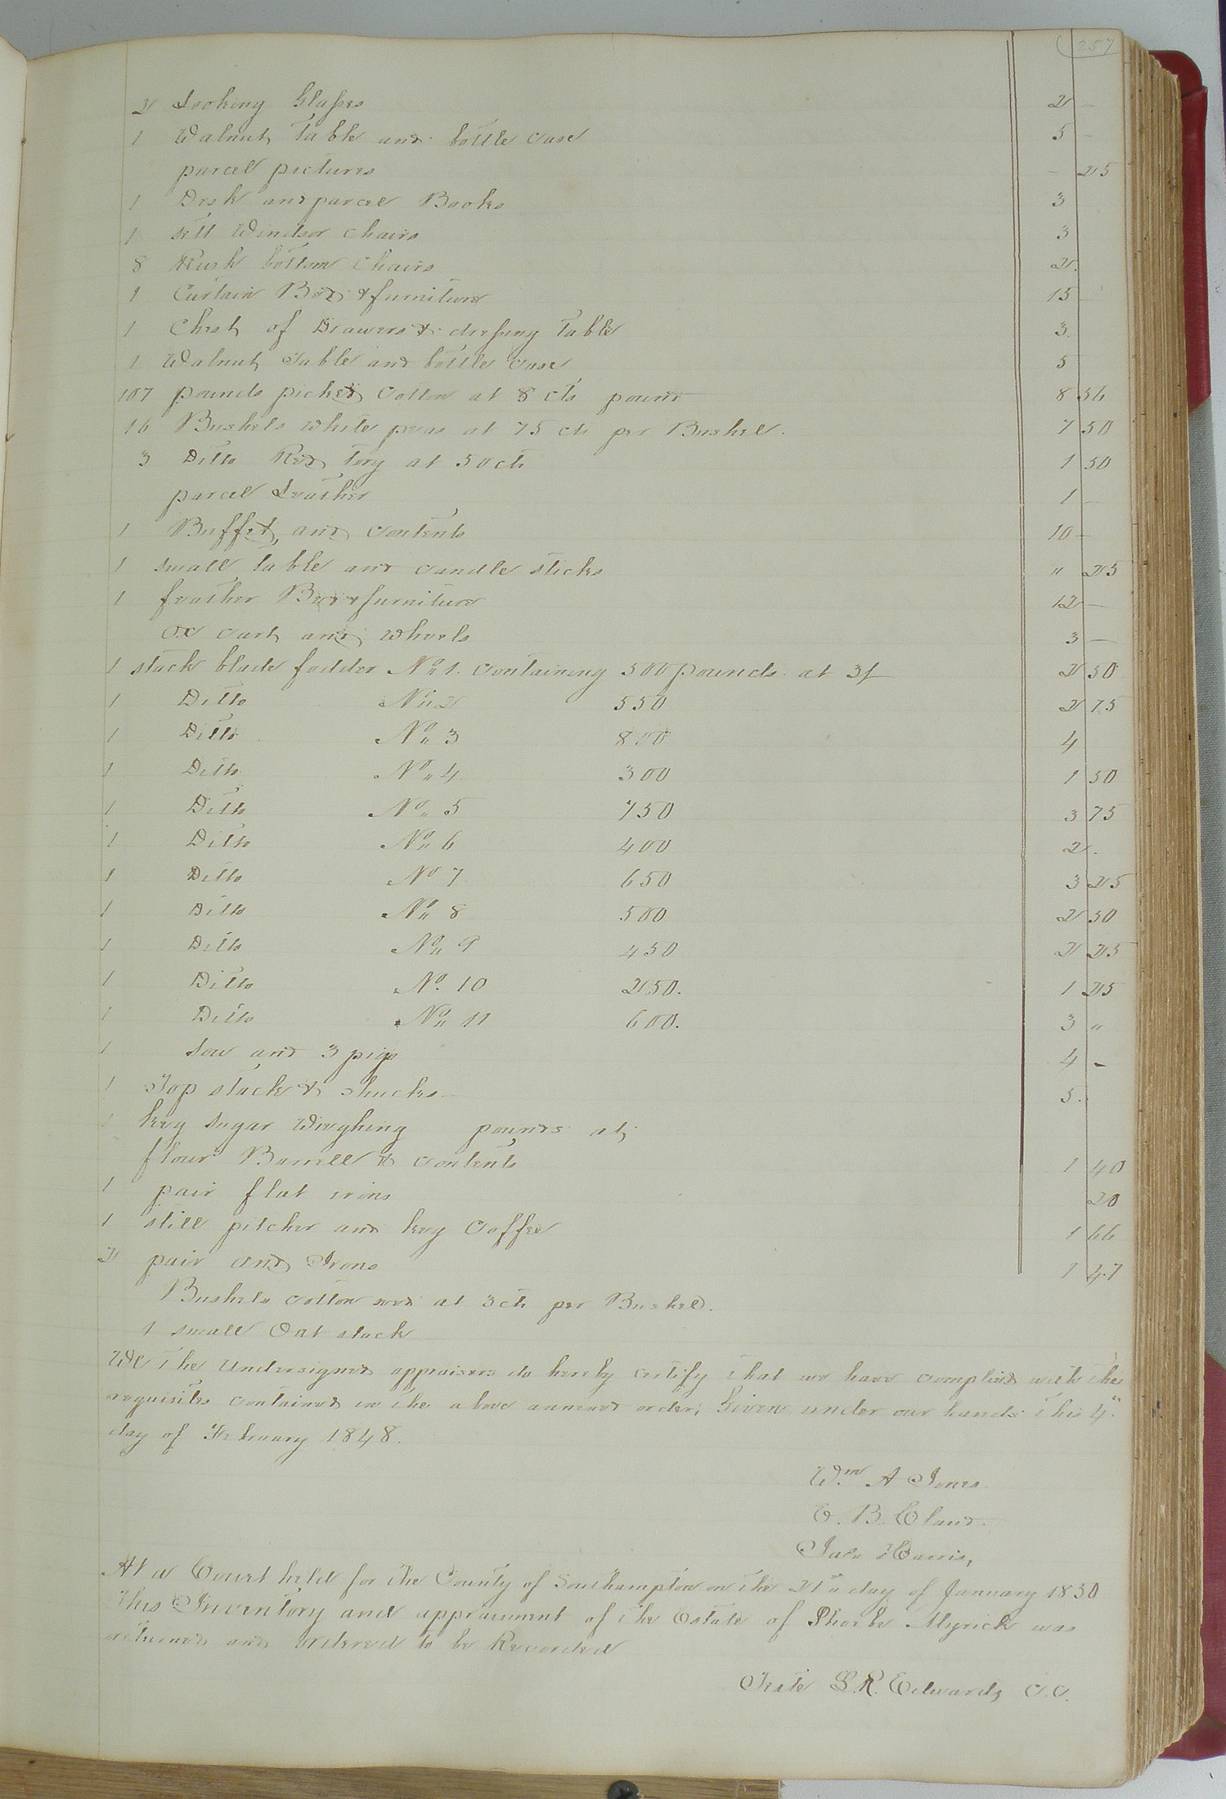 257
2 Looking Glasses 2 –
1 Walnut Table and bottle case 5 –
parcel pictures – 25
1 Desk and parcel Books 3
1 sett Windsor Chairs 3
8 Rush bottom Chairs 2.
1 Curtain Bed & furniture 15 –
1 Chest of Drawers & dressing Table 3.
1 Walnut Table and bottle case 5
107 pounds picked Cotton at 8 cts pound 8 56
16 Bushels white peas at 75 cts per Bushel. 7 50
3 Ditto Red Tory at 50 cts 1 50
parcel Leather 1 –
1 Buffet, and contents 10 –
1 small table and candle sticks " 25
1 feather Bed & furniture 12 –
Ox cart and wheels 3 –
1 stack blade fodder No 1. containing 500 pounds at 3/ 2 50
1 Ditto No 2 550 2 75
1 Ditto No 3 800 4
1 Ditto No 4 300 1 50
1 Ditto No 5 750 3 75
1 Ditto No 6 400 2.
1 Ditto No 7 650 3 25
1 Ditto No 8 500 2 50
1 Ditto No 9 450 2 25
1 Ditto No. 10 250. 1 25
1 Ditto No 11 600. 3 "
1 Sow and 3 pigs 4 –
1 Top stack & shucks 5.
1 keg Sugar Weighing pounds at
flour Barrell & contents 1 40
1 pair flat irons 20
1 still pitcher and keg Coffee 1 66
2 pair and Irons 1 47
Bushels cotton seed at 3 cts per Bushel.
1 small Oat stack
We the undersigned appraisers do hereby certify that we have complied with the
requisites contained in the above annexed order; Given under our hands this 4"
day of February 1848.
Wm A Jones
E. B. Claud.
Jas Harris,
At a Court held for the County of Southampton on the 21st day of January 1850
This Inventory and appraisment of the Estate of Phoebe Myrick was
returned and ordered to be Recorded
Teste L R. Edwards C.C.